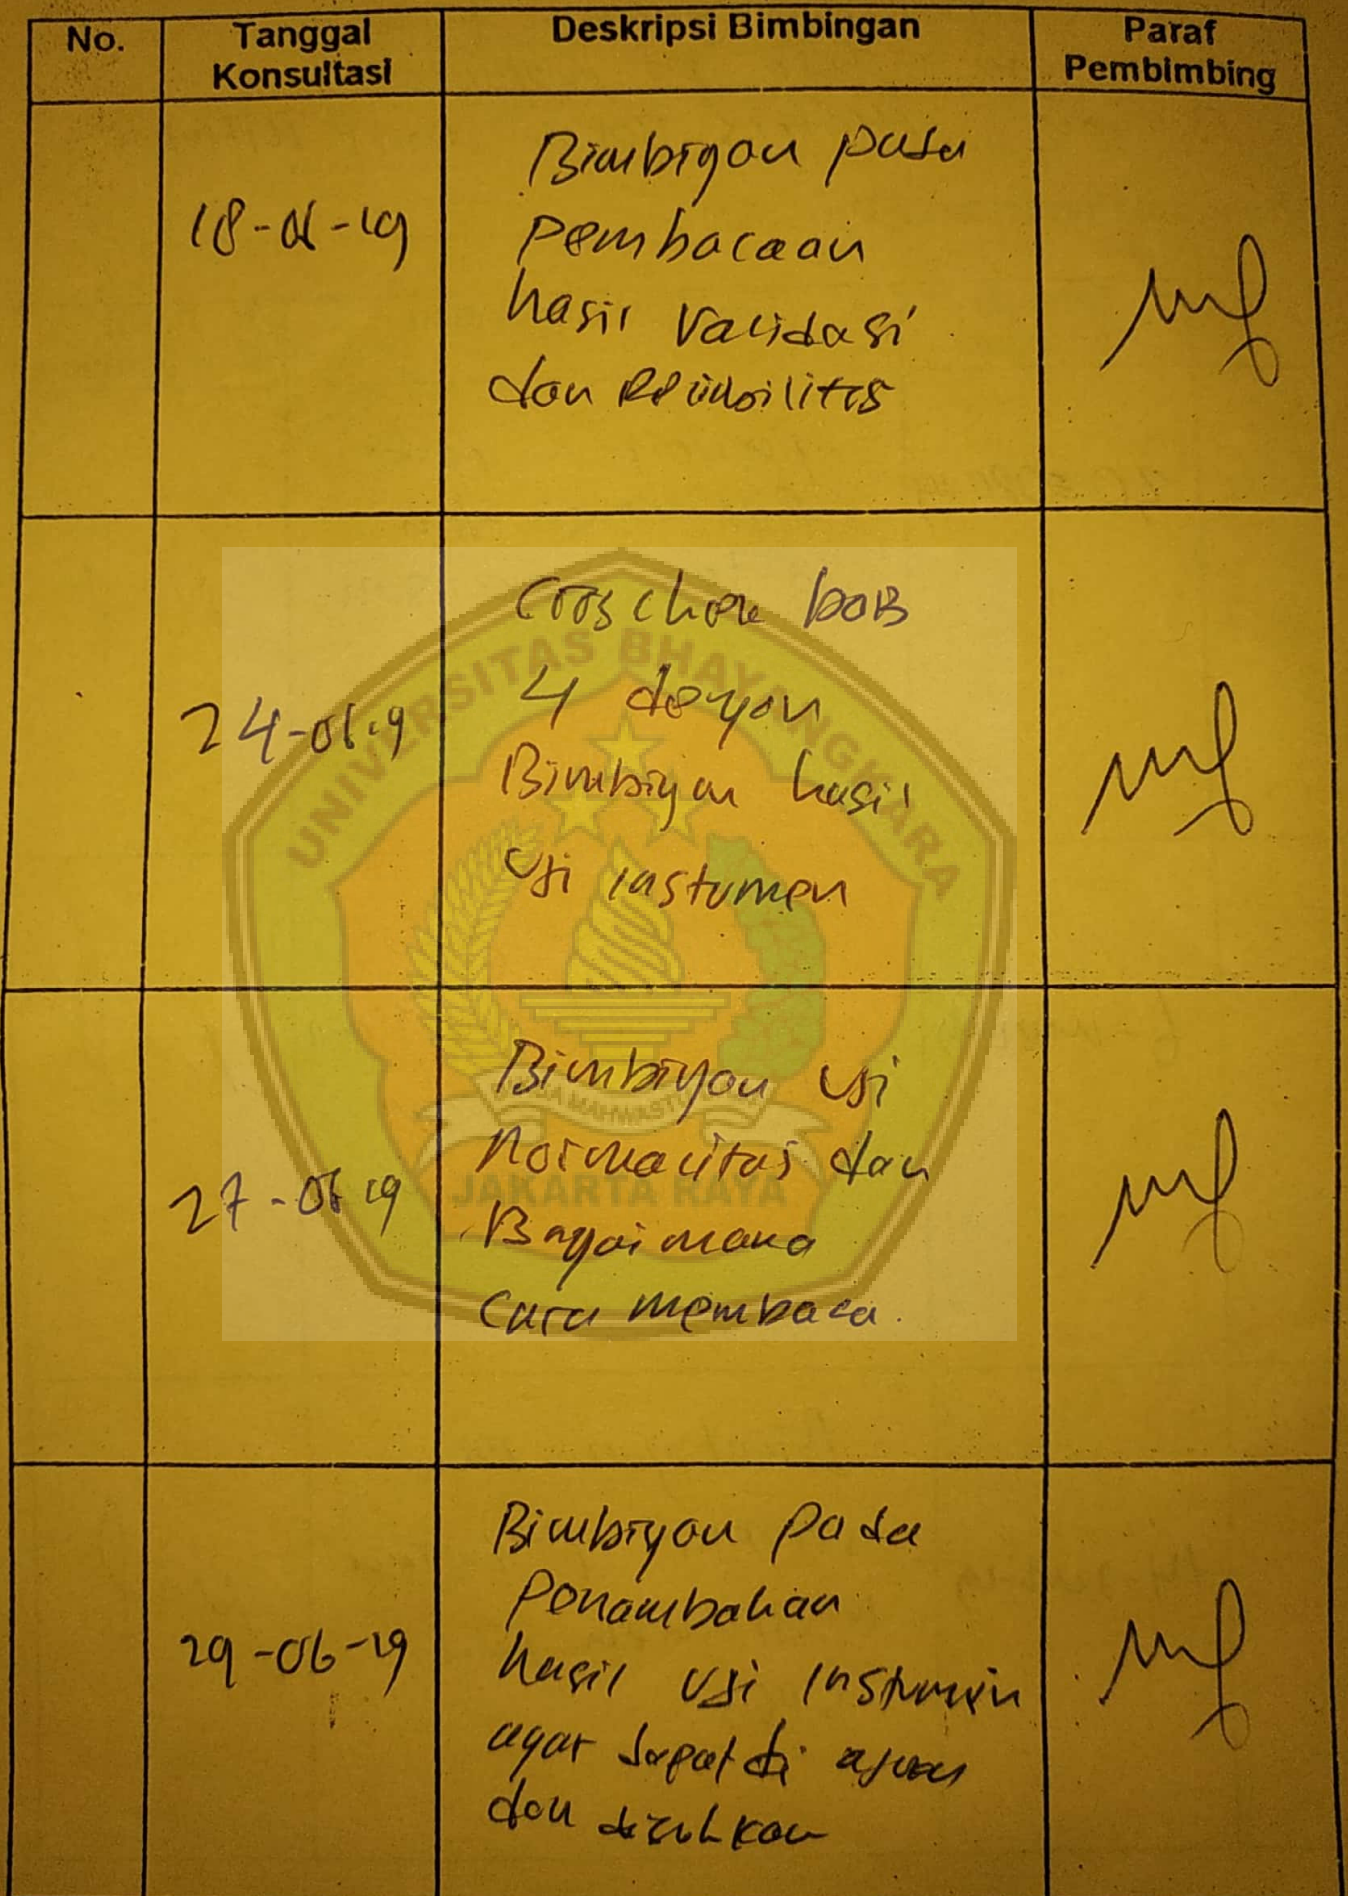 No.
Tanggal
Konsultasi
Deskripsi Bimbingan
Paraf
Pembimbing
18-06-19
Bimbigan pada
pembacaan
hasil Validasi
dan
24-06-19
Croschek
4 dengan
Bimbigan hasil
Uji instumen
27-06-19
Bimbigan Uji
Normalitas dan
Bagaimana
Cara membaca.
29-06-19
Bimbigan Pada
Penambahan
hasil Uji instumen
agar dapat di
dan
UNIVERSITAS BHAYANGKARA
JAKARTA RAYA